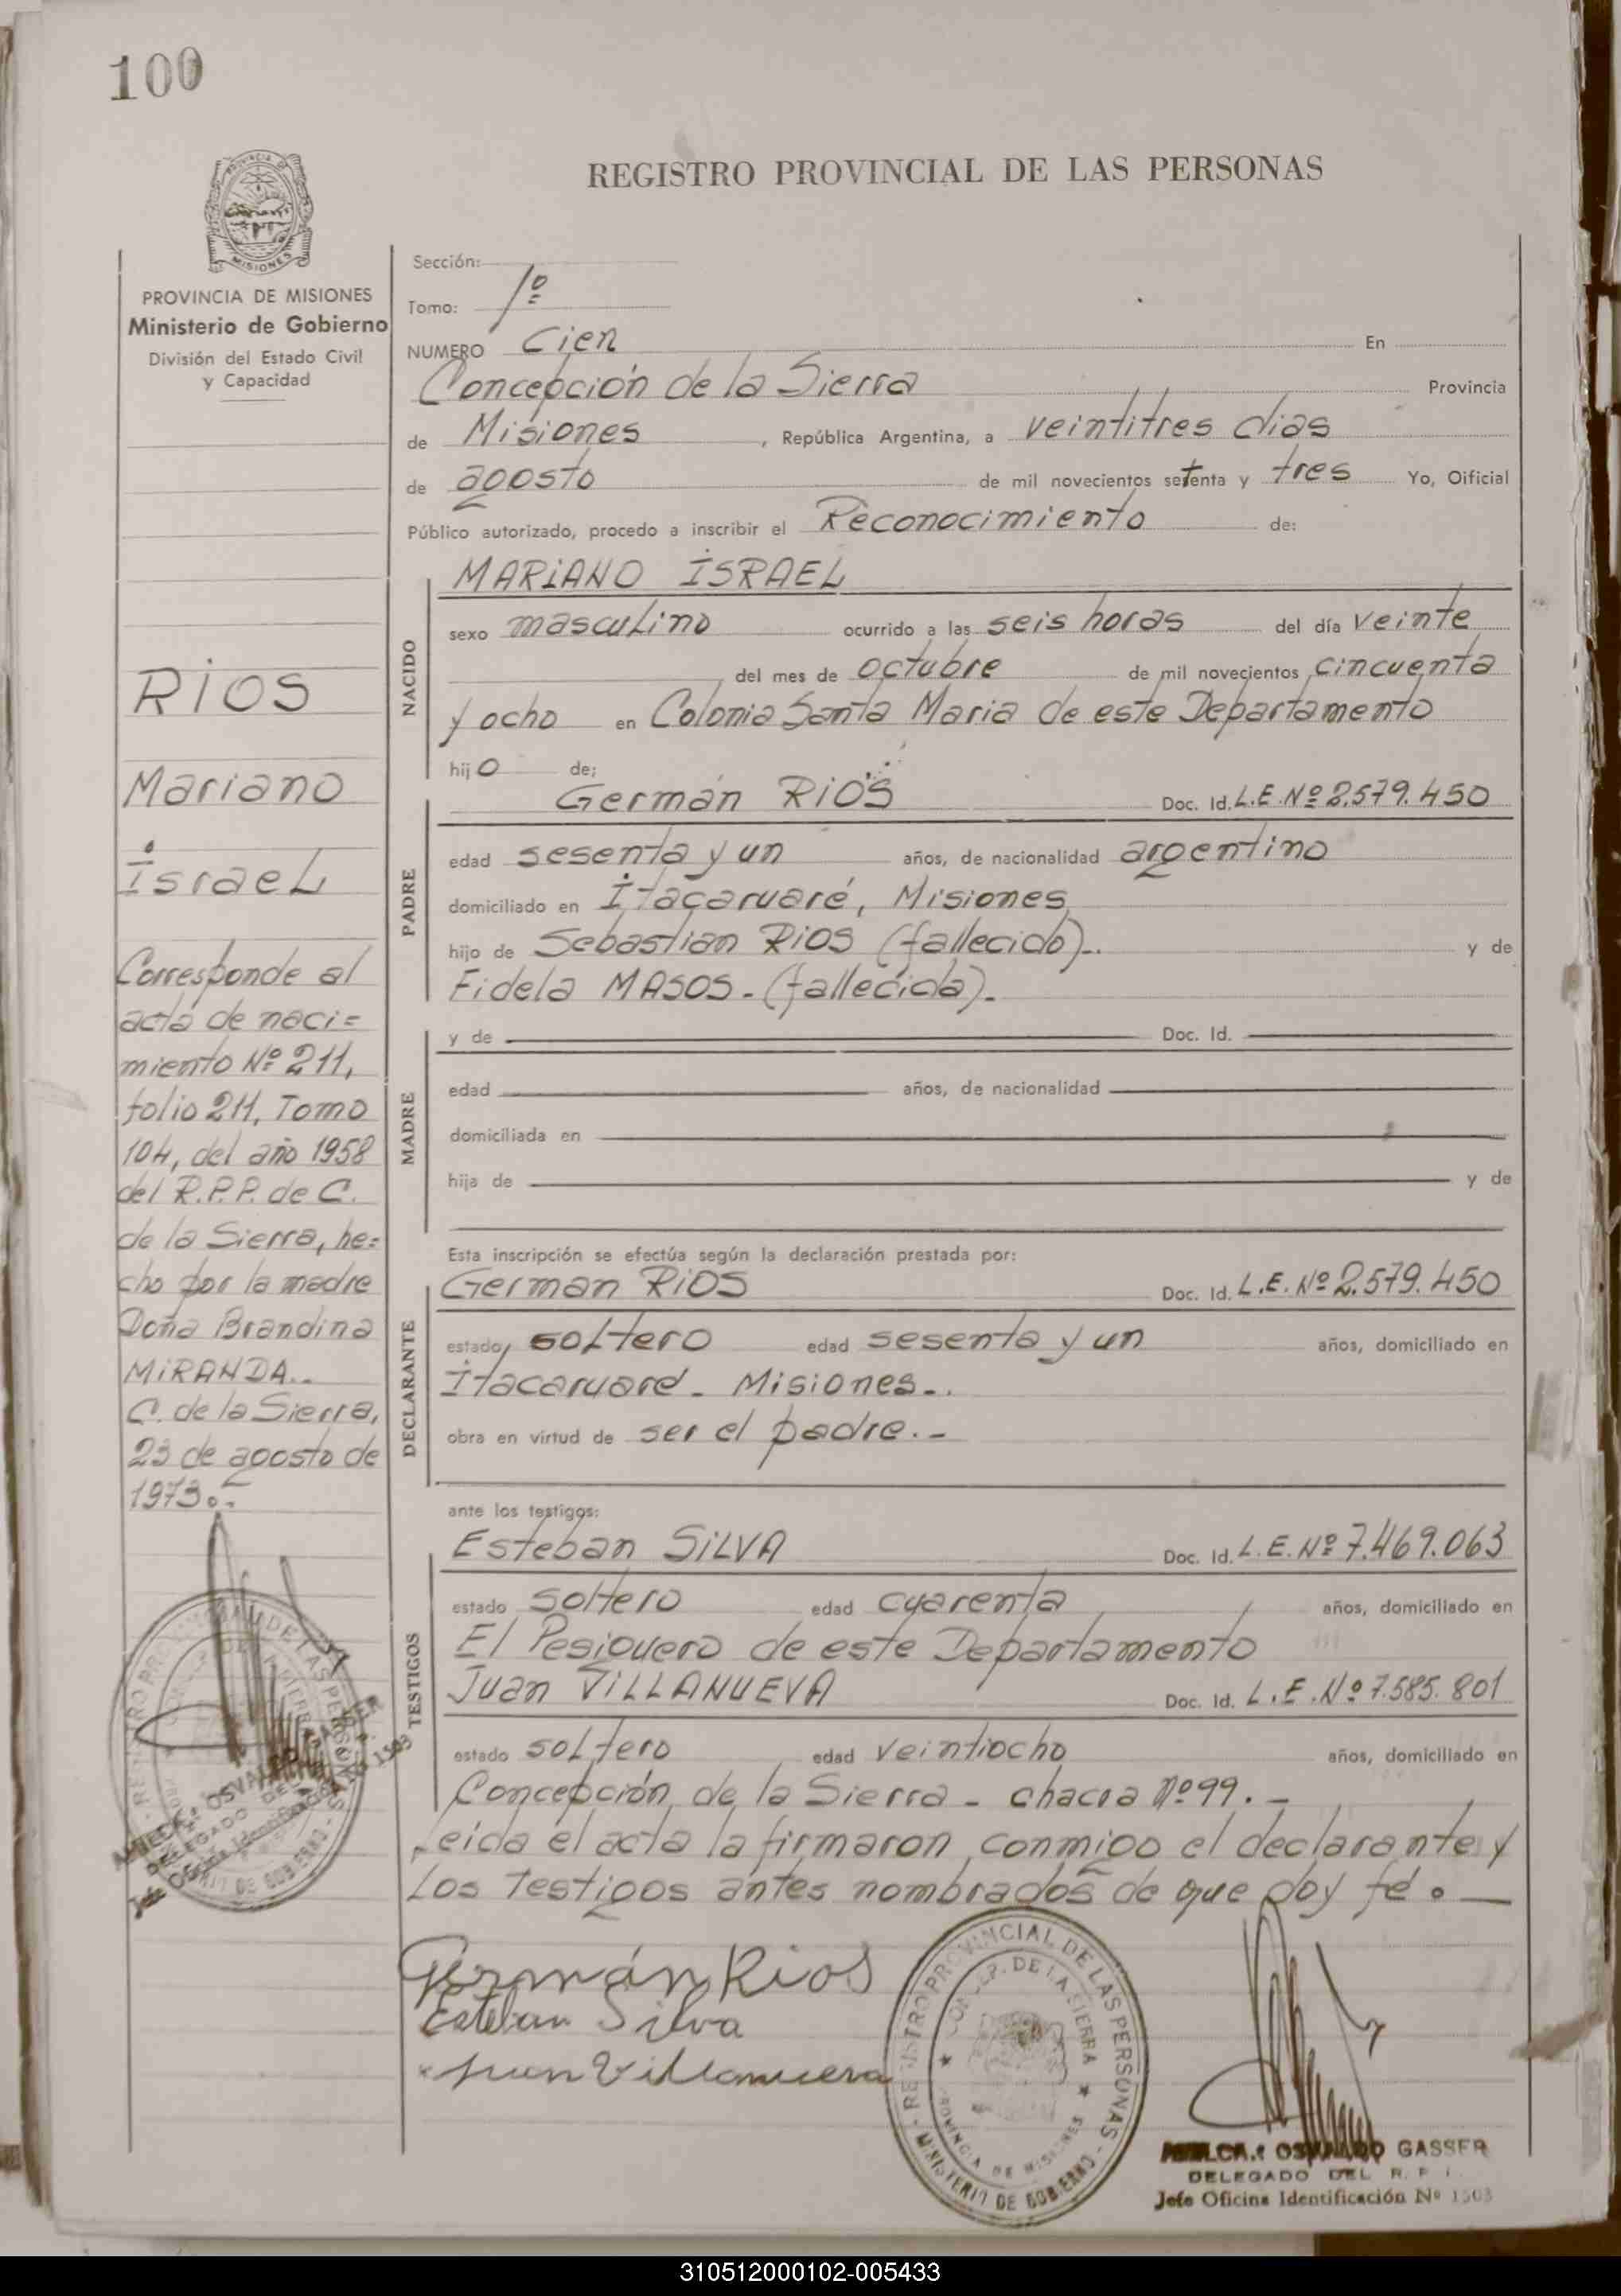 100
REGISTRO PROVINCIAL DE LAS PERSONAS
MISIONES
PROVINCIA DE MISIONES
Ministerio de Gobierno
División del Estado Civil
y Capacidad
RIOS
Mariano
Israel
Corresponde al
acta de naci=
miento Nº 211,
folio 211, Tomo
104, del año 1958
del R.P.P. de C.
de la Sierra, he=
cho por la madre
Doña Brandina
MIRANDA..
C. de la Sierra,
23 de agosto de
1973.-
Sección:
Tomo: 1º
NUMERO Cien En
Concepción de la Sierra Provincia
de Misiones, República Argentina, a veintitres dias
de agosto de mil novecientos setenta y tres Yo, Oificial
Público autorizado, procedo a inscribir el Reconocimiento de:
NACIDO
MARIANO ISRAEL
sexo masculino ocurrido a las seis horas del día veinte
del mes de octubre de mil novecientos cincuenta
y ocho en Colonia Santa Maria de este Departamento
hijo de;
PADRE
Germán RIOS Doc. Id. L.E. Nº 2.579.450
edad sesenta y un años, de nacionalidad argentino
domiciliado en Itacaruaré, Misiones
hijo de Sebastian RIOS (fallecido).. y de
Fidela MASOS.-(fallecida).-
MADRE
y de Doc. Id.
edad años, de nacionalidad
domiciliada en
hija de y de
Esta inscripción se efectúa según la declaración prestada por:
DECLARANTE
German RIOS Doc. Id. L.E. Nº 2.579.450
estado soltero edad sesenta y un años, domiciliado en
Itacaruaré - Misiones-.
obra en virtud de ser el padre.-
ante los testigos:
TESTIGOS
Esteban SILVA Doc. Id. L.E. Nº 7.469.063
estado soltero edad cuarenta años, domiciliado en
El Pesiguero de este Departamento
Juan VILLANUEVA Doc. Id. L.E. Nº 7.585.801
estado soltero edad veintiocho años, domiciliado en
Concepción de la Sierra - chacra Nº 99.-
Leida el acta la firmaron conmigo el declarante y
los testigos antes nombrados de que doy fé.-
Germán Rios
Esteban Silva
Juan Villanueva
REGISTRO PROVINCIAL DE LAS PERSONAS
CONCEP. DE LA SIERRA
PROVINCIA DE MISIONES
MINISTERIO DE GOBIERNO
OSVALDO GASSER
DELEGADO DEL R. P.
Jefe Oficina Identificación Nº 1503
310512000102-005433